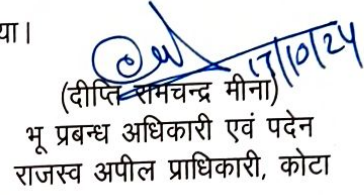 या।
17/10/24
(दीप्ति रामचन्द्र मीना)
भू प्रबन्ध अधिकारी एवं पदेन
राजस्व अपील प्राधिकारी, कोटा